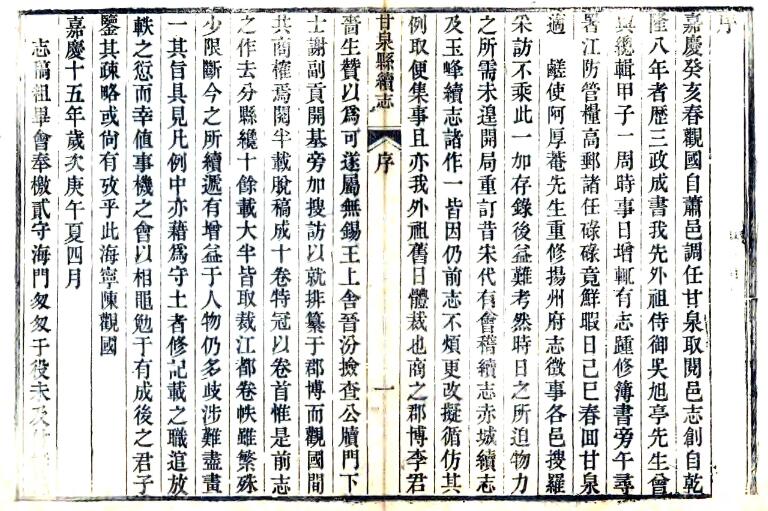 序
嘉慶癸亥春觀國自蕭邑調任甘泉取閱邑志創自乾
隆八年者歴三政成書我先外祖侍御吳旭亭先生曾
與纔輯甲子一周時事日增輒有志踵修簿書旁午尋
署江防管糧高郵諸任碌碌竟鮮暇日己巳春回甘泉
適 鹺使阿厚菴先生重修揚州府志徵事各邑搜羅
采訪不乘此一加存錄後益難考然時日之所迫物力
之所需未遑開局重訂昔宋代有會稽續志赤城續志
及玉峰續志諸作一皆因仍前志不煩更改擬循仿其
例取便集事且亦我外祖舊日體裁也商之郡博李君
甘泉縣續志 序 一
嗇生贊以為可遂屬無錫王上舍晉汾撿查公牘門下
士謝副貢開基旁加搜訪以就排纂于郡博而觀國間
共商榷焉閱半載脫稿成十卷特冠以卷首惟是前志
之作去分縣纔十餘載大半皆取裁江都卷帙雖繁殊
少限斷今之所續遞有增益于人物仍多歧涉難盡畫
一其旨具見凡例中亦藉為守土者修記載之職逭放
軼之愆而幸值事機之會以相黽勉于有成後之君子
鑒其疎略或尙有攷乎此海寧陳觀國
嘉慶十五年歲次庚午夏四月
志稿粗畢會奉檄貳守海門匆匆于役未及